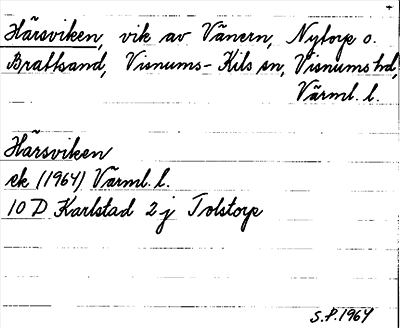 Härsviken, vik av Vänern, Nytorp o.
Brattsand, Visnums-Kils sn, Visnums hd,
Värml. l.
Härsviken
ek (1964) Värml. l.
10 D Karlstad 2 j Tolstorp
S.P. 1964